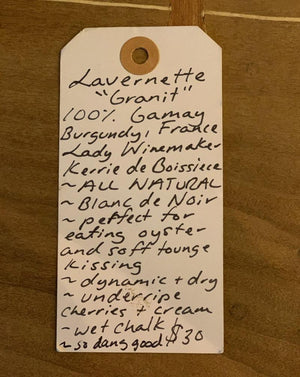 Lavernette
"Granit"
100% Gamay
Burgundy, France
Lady Winemaker
Kerrie de Boissiece
~ ALL NATURAL
~ Blanc de Noir
~ perfect for
eating oyster
and soft tounge
kissing
~ dynamic + dry
~ underripe
cherries + cream
~ wet chalk
~ so dang good $30